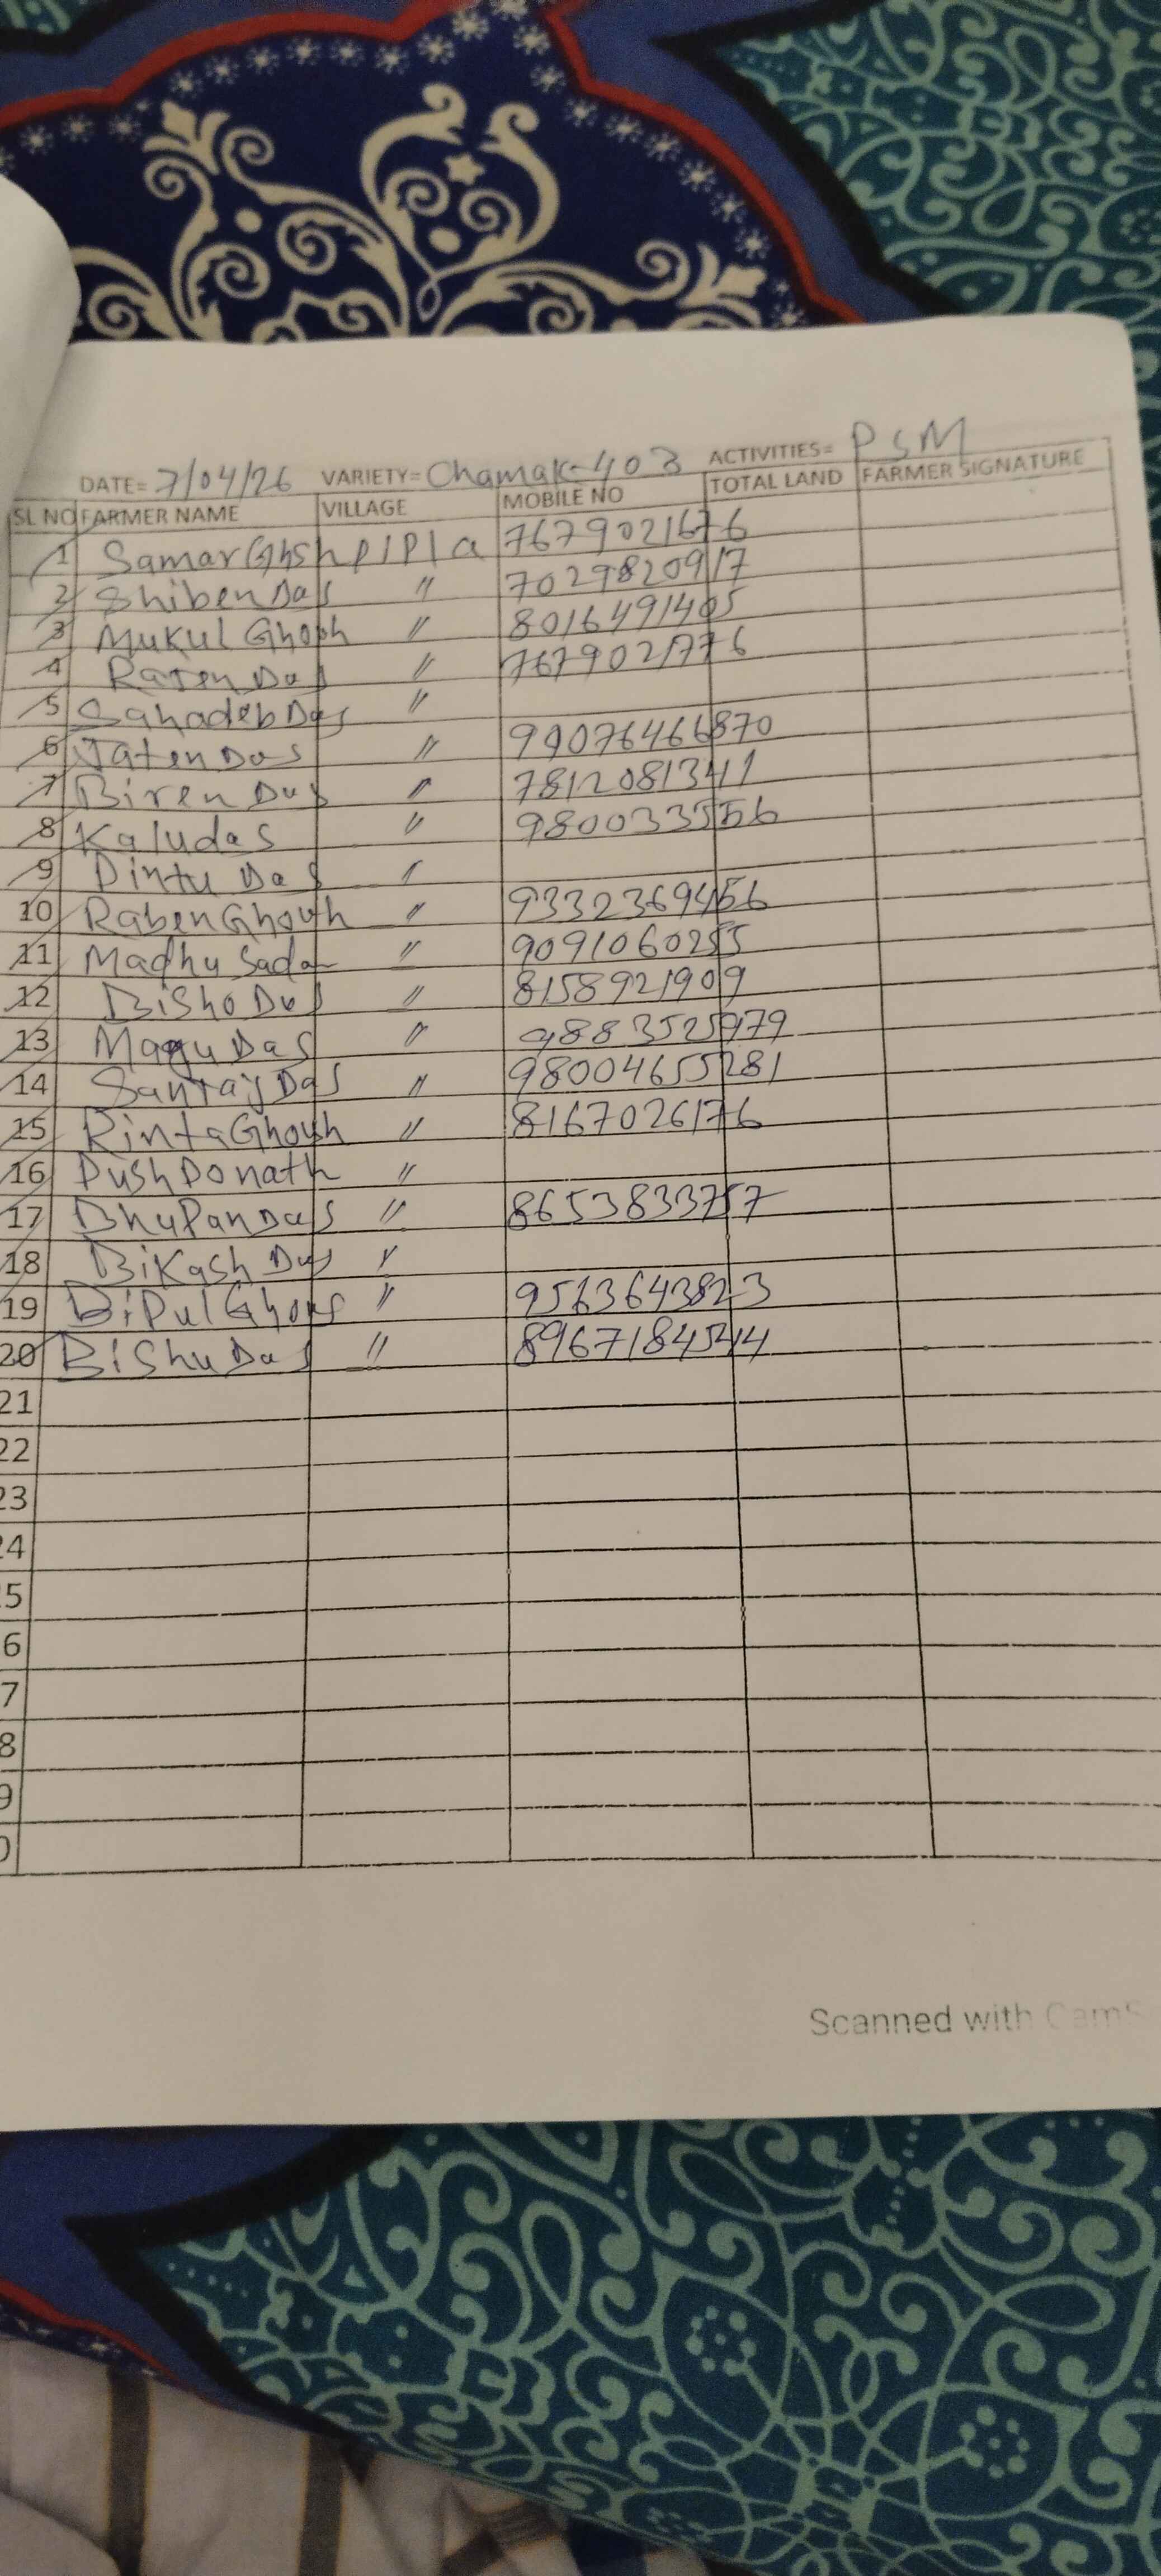 DATE= 7/04/26 VARIETY= Chamak-403 ACTIVITIES= PSM
SL NO FARMER NAME VILLAGE MOBILE NO TOTAL LAND FARMER SIGNATURE
1 Samar Ghsh PIPla 7679021676
2 Shiben Das " 7029820917
3 Mukul Ghosh " 8016491405
4 Raten Das " 7679021776
5 Sahadeb Das "
6 Jaten Das " 99076466870
7 Biren Das " 7812081341
8 Kaludas " 980033556
9 Pintu Das "
10 Raben Ghosh " 9332369456
11 Madhu Sadan " 9091060255
12 Bisho Das " 8158921909
13 Magu Das " 9883525979
14 Santaj Das " 98004655281
15 Rinta Ghosh " 8167026176
16 PushPonath "
17 BhuPan Das " 8653833757
18 Bikash Das "
19 BiPul Ghosh " 9563643823
20 Bishu Das " 8967184544
21
22
23
24
5
6
7
8
9
0
Scanned with CamS